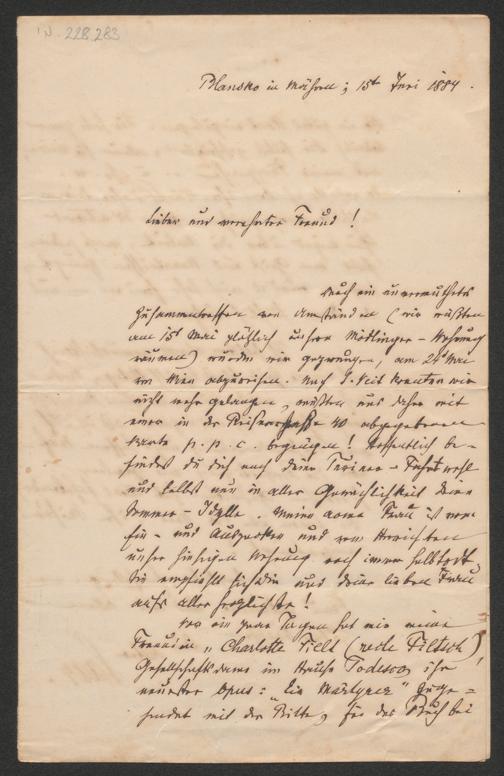 N. 228.283
Blansko in Mähren; 15t Juni 1884.
Lieber und verehrter Freund!
Durch ein unvermuthetes
Zusammentreffen von Umständen (wir mußten
am 15t Mai plötzlich unsere Mödlinger-Wohnung
räumen) wurden wir gezwungen, am 24t Mai
von Wien abzureisen. Nach St. Veit konnten wir
nicht mehr gelangen, mußten uns daher mit
einer in der Reisnerstraße 40 abgegebenen
Karte p. p. c. begnügen! Hoffentlich be-
findest du dich nach deiner Turiner-Fahrt wohl
und lebst nun in aller Gemächlichkeit deine
Sommer-Idylle. Meine arme Frau ist vom
Ein- und Auspacken und vom Herrichten
unsrer hiesigen Wohnung noch immer halbtodt.
Sie empfiehlt sich dir und deiner lieben Frau
aufs allerherzlichste!
Vor ein paar Tagen hat mir meine
Freundin „Charlotte Fielt (recte Filtsch),
Gesellschaftsdame im Hause Todesco, ihr
neuestes Opus: „Die Märtyrer" zuge-
sendet mit der Bitte, für das Buch bei